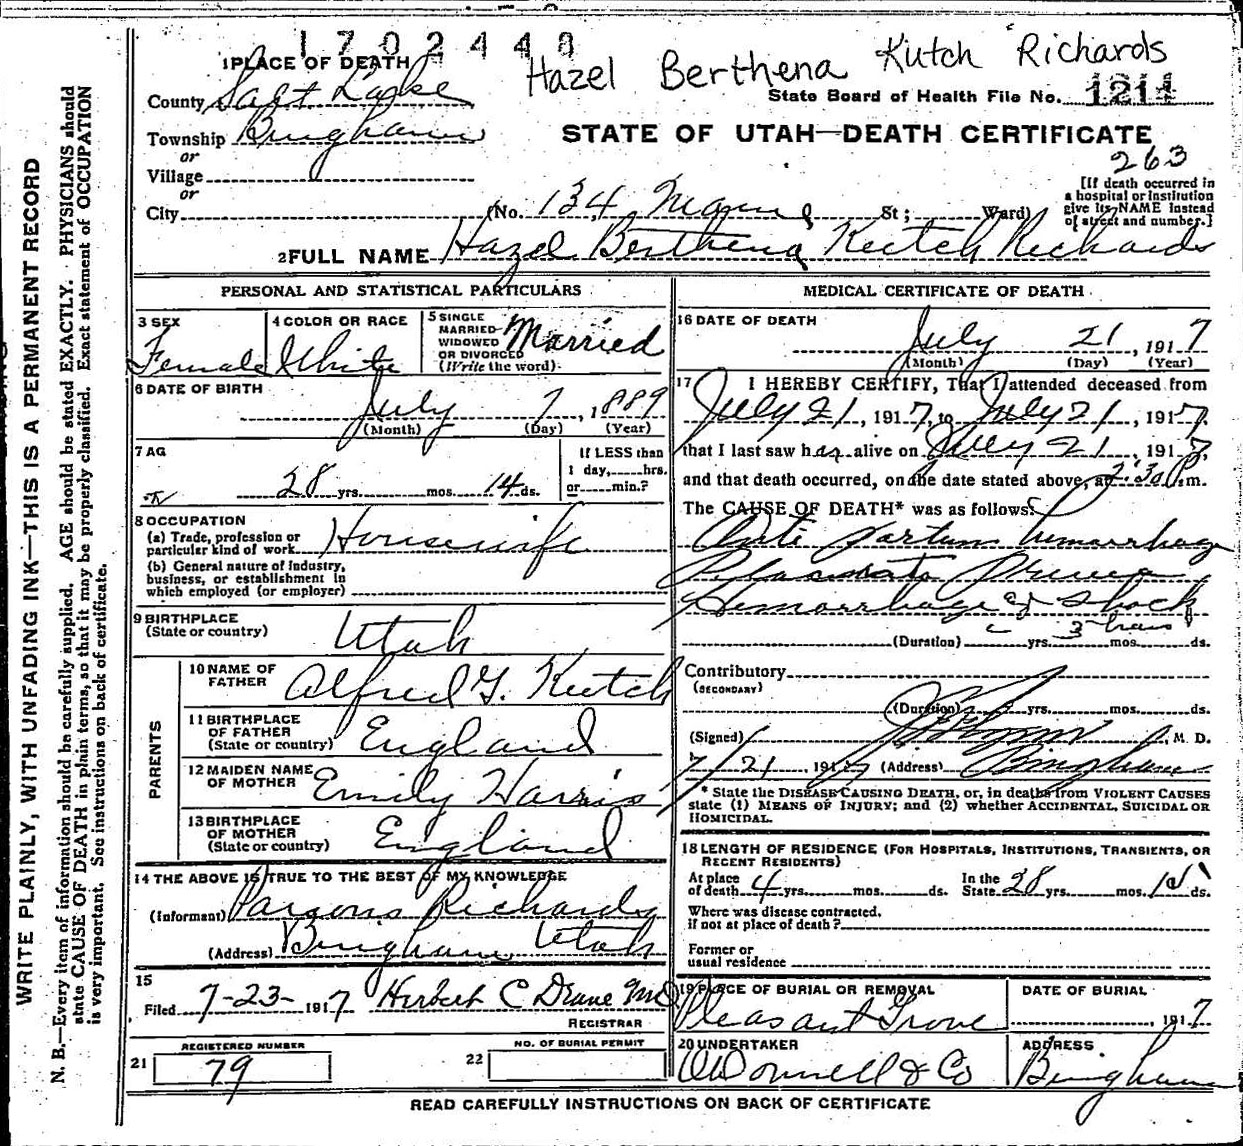 1702448
Hazel Berthena Kutch Richards
1 PLACE OF DEATH
State Board of Health File No. 1214
County Salt Lake
Township Bingham
STATE OF UTAH—DEATH CERTIFICATE
or
263
Village
or
[If death occurred in
a hospital or institution
give its NAME instead
of street and number.]
City (No. 134 Main St; Ward)
2 FULL NAME Hazel Berthena Kutch Richards
PERSONAL AND STATISTICAL PARTICULARS
3 SEX
Female
4 COLOR OR RACE
White
5 SINGLE
MARRIED
WIDOWED
OR DIVORCED
(Write the word)
Married
6 DATE OF BIRTH
July 7, 1889
(Month) (Day) (Year)
7 AG
28 yrs. mos. 14 ds.
If LESS than
1 day, hrs.
or min.?
8 OCCUPATION
(a) Trade, profession or
particular kind of work Housewife
(b) General nature of Industry,
business, or establishment in
which employed (or employer)
9 BIRTHPLACE
(State or country) Utah
PARENTS
10 NAME OF
FATHER Alfred G. Kutch
11 BIRTHPLACE
OF FATHER
(State or country) England
12 MAIDEN NAME
OF MOTHER Emily Harris
13 BIRTHPLACE
OF MOTHER
(State or country) England
14 THE ABOVE IS TRUE TO THE BEST OF MY KNOWLEDGE
(Informant) Parsons Richards
(Address) Bingham Utah
15
Filed 7-23- 1917 Herbert C Drane MD
REGISTRAR
REGISTERED NUMBER
21 79
NO. OF BURIAL PERMIT
22
MEDICAL CERTIFICATE OF DEATH
16 DATE OF DEATH
July 21, 1917
(Month) (Day) (Year)
17 I HEREBY CERTIFY, That I attended deceased from
July 21, 1917, to July 21, 1917,
that I last saw her alive on July 21, 1917,
and that death occurred, on the date stated above, at 2:30 P.m.
The CAUSE OF DEATH* was as follows:
Ante Partum hemorrhage
Placenta
Hemorrhage & Shock
(Duration) yrs. 3 hours mos. ds.
Contributory
(SECONDARY)
(Duration) yrs. mos. ds.
(Signed) , M. D.
7/21 1917 (Address) Bingham
* State the DISEASE CAUSING DEATH, or, in deaths from VIOLENT CAUSES
state (1) MEANS OF INJURY; and (2) whether ACCIDENTAL, SUICIDAL OR
HOMICIDAL.
18 LENGTH OF RESIDENCE (FOR HOSPITALS, INSTITUTIONS, TRANSIENTS, OR
RECENT RESIDENTS)
At place
of death 4 yrs. mos. ds. In the
State 28 yrs. mos. ds.
Where was disease contracted,
if not at place of death?
Former or
usual residence
19 PLACE OF BURIAL OR REMOVAL
Pleasant Grove
DATE OF BURIAL
, 1917
20 UNDERTAKER
O'Donnell & Co
ADDRESS
Bingham
READ CAREFULLY INSTRUCTIONS ON BACK OF CERTIFICATE
WRITE PLAINLY, WITH UNFADING INK—THIS IS A PERMANENT RECORD
N. B.—Every item of information should be carefully supplied. AGE should be stated EXACTLY. PHYSICIANS should
state CAUSE OF DEATH in plain terms, so that it may be properly classified. Exact statement of OCCUPATION
is very important. See instructions on back of certificate.